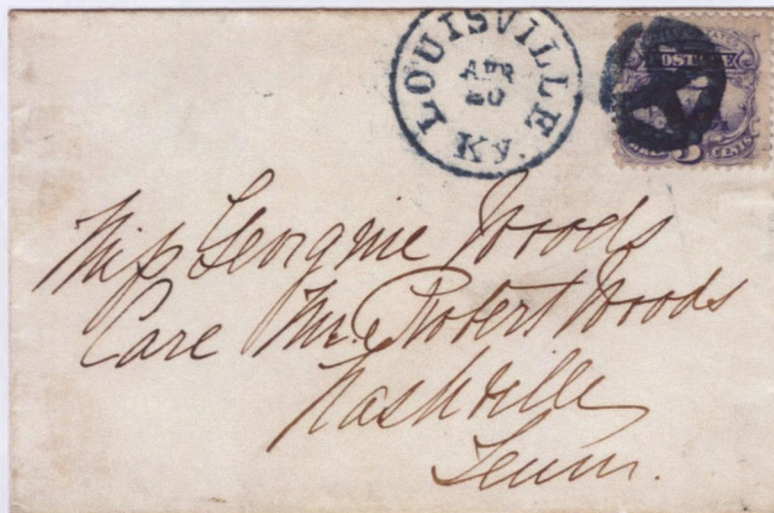 LOUISVILLE Ky.
APR
20
POSTAGE
CENTS
Miss Georgine Woods
Care Mr. Robert Woods
Nashville
Tenn.